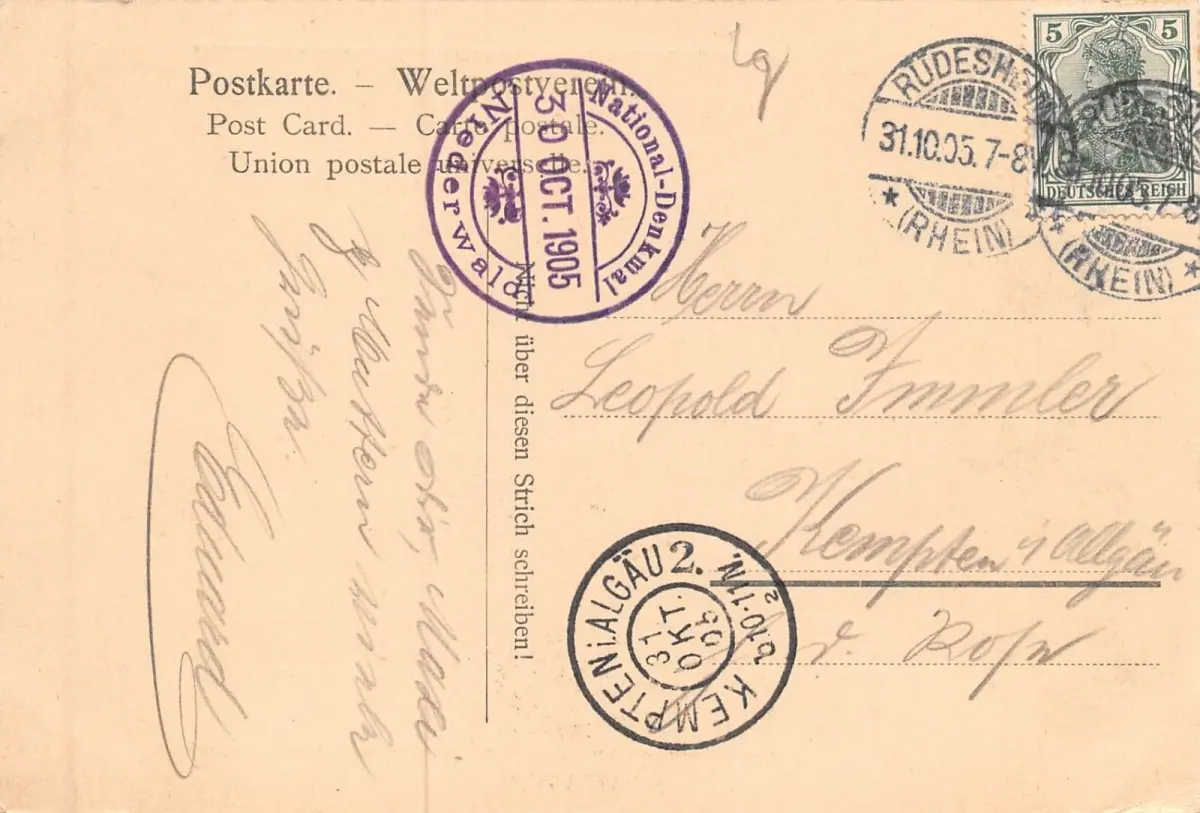 Postkarte. – Weltpostverein.
Post Card. — Carte postale.
Union postale universelle.
National-Denkmal
30 OCT. 1905
Niederwald
RÜDESHEIM
31.10.05.7-8
* (RHEIN) *
5 5
DEUTSCHES REICH
(RHEIN) *
Nicht über diesen Strich schreiben!
Herrn
Leopold Immler
Kempten i/Allgäu
KEMPTEN i. ALGÄU 2.
31
OKT.
05
N. 10-11
Grüßen
Edmund